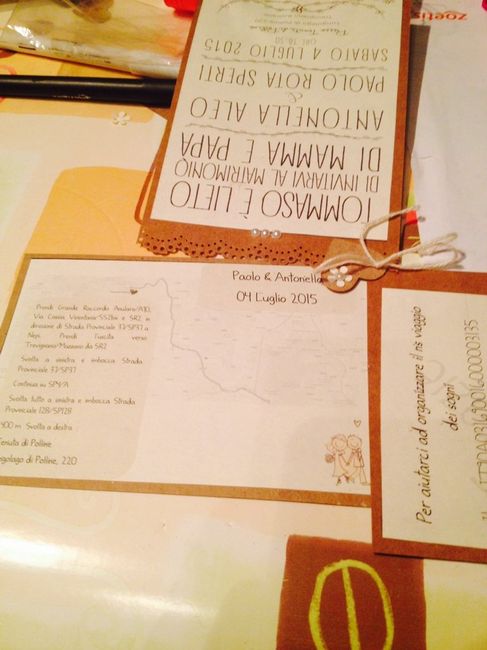 zoetis
TOMMASO È LIETO
DI INVITARVI AL MATRIMONIO
DI MAMMA E PAPÀ
ANTONELLA ALEO
&
PAOLO ROTA SPERTI
SABATO 4 LUGLIO 2015
ORE 16.30
Paolo & Antonella
04 Luglio 2015
Prendi Grande Raccordo Anulare/A90,
Via Cassia Veientana/SS2bis e SR2 in
direzione di Strada Provinciale 37/SP37 a
Nepi. Prendi l'uscita verso
Trevignano/Mazzano da SR2
Svolta a sinistra e imbocca Strada
Provinciale 37/SP37
Continua su SP4/A
Svolta tutto a sinistra e imbocca Strada
Provinciale 12B/SP12B
400 m Svolta a destra
Tenuta di Polline
ngolago di Polline, 220
Per aiutarci ad organizzare il ns viaggio
dei sogni